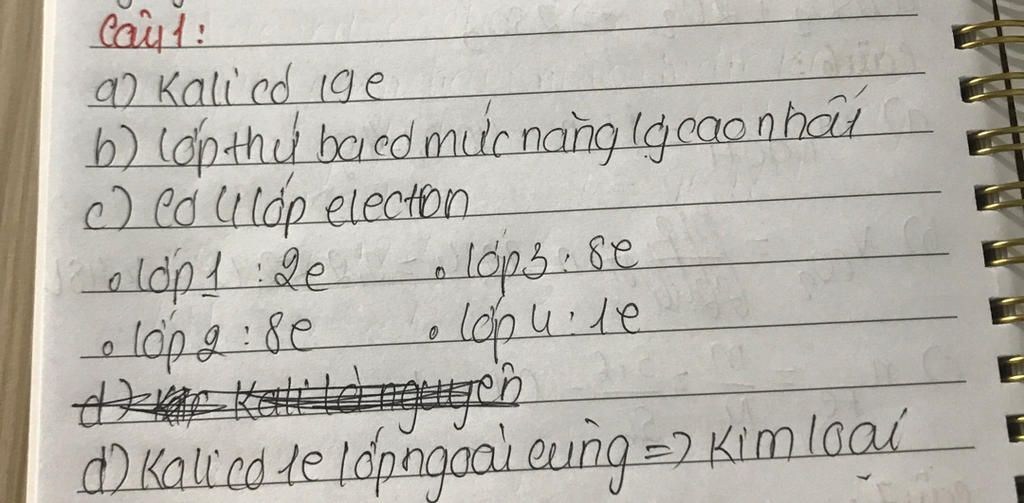 Câu 1:
a) Kali có 19e
b) lớp thứ ba có mức năng lg cao nhất
c) có 4 lớp electon
• lớp 1 : 2e • lớp 3 : 8e
• lớp 2 : 8e • lớp 4 : 1e
d) Kali là nguyên
d) Kali có 1e lớp ngoài cùng => Kim loại